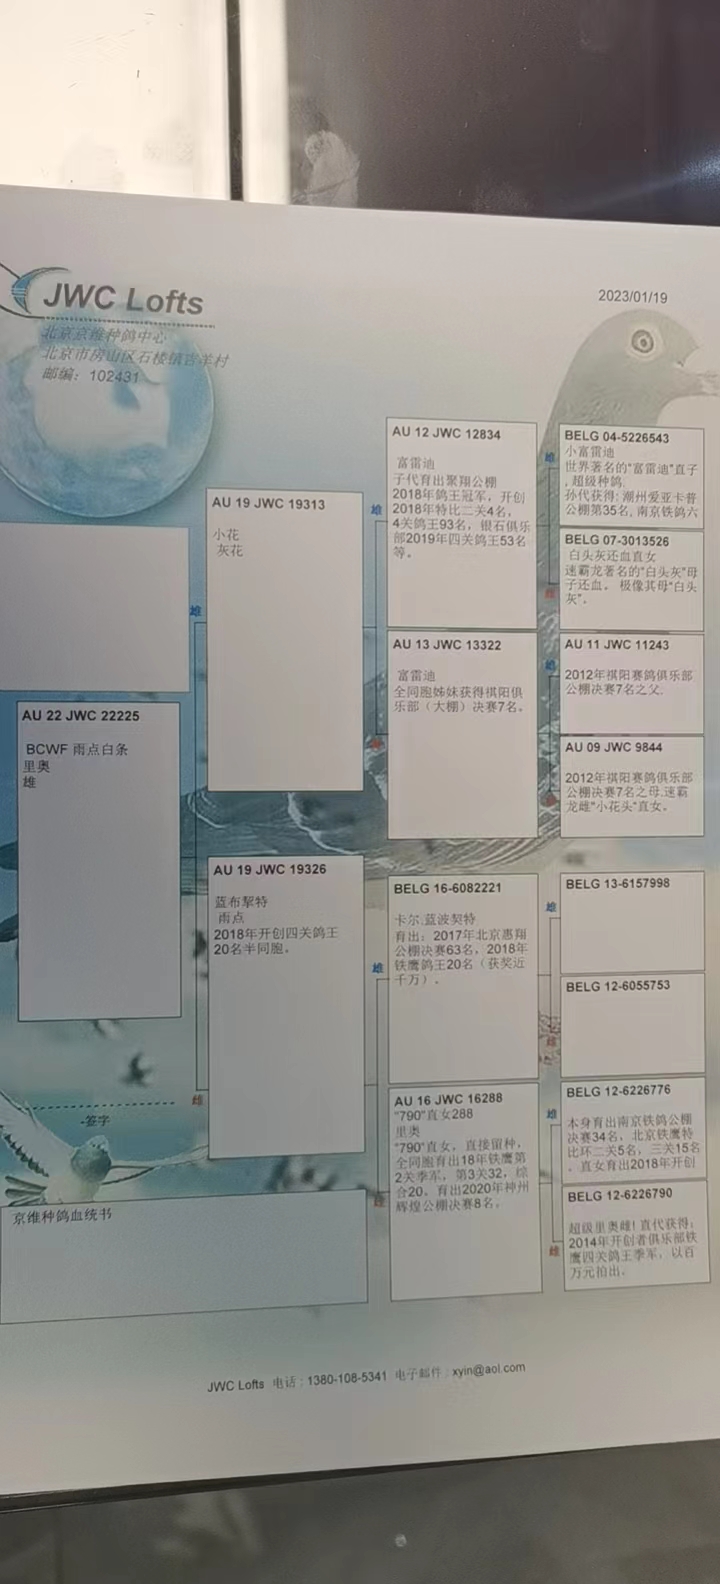 JWC Lofts
北京京维种鸽中心
北京市房山区石楼镇吉羊村
邮编：102431
2023/01/19
AU 22 JWC 22225
BCWF 雨点白条
里奥
雄
-签字
京维种鸽血统书
雄
AU 19 JWC 19313
小花
灰花
雌
AU 19 JWC 19326
蓝布挈特
雨点
2018年开创四关鸽王
20名半同胞。
雄
AU 12 JWC 12834
富雷迪
子代育出聚翔公棚
2018年鸽王冠军，开创
2018年特比二关4名，
4关鸽王93名，银石俱乐
部2019年四关鸽王53名
等。
AU 13 JWC 13322
富雷迪
全同胞姊妹获得祺阳俱
乐部（大棚）决赛7名。
雄
BELG 16-6082221
卡尔.蓝波契特
育出：2017年北京惠翔
公棚决赛63名，2018年
铁鹰鸽王20名（获奖近
千万）。
雌
AU 16 JWC 16288
"790"直女288
里奥
"790"直女，直接留种，
全同胞育出18年铁鹰第
2关季军，第3关32，综
合20。育出2020年神州
辉煌公棚决赛8名。
雄
BELG 04-5226543
小富雷迪
世界著名的"富雷迪"直子
，超级种鸽.
孙代获得: 潮州爱亚卡普
公棚第35名, 南京铁鸽六
雌
BELG 07-3013526
白头灰还血直女
速霸龙著名的"白头灰"母
子还血。极像其母"白头
灰"。
雄
AU 11 JWC 11243
2012年祺阳赛鸽俱乐部
公棚决赛7名之父.
AU 09 JWC 9844
2012年祺阳赛鸽俱乐部
公棚决赛7名之母.速霸
龙雌"小花头"直女。
雄
BELG 13-6157998
雌
BELG 12-6055753
雄
BELG 12-6226776
本身育出南京铁鸽公棚
决赛34名，北京铁鹰特
比环二关5名，三关15名
，直女育出2018年开创
雌
BELG 12-6226790
超级里奥雌! 直代获得:
2014年开创者俱乐部铁
鹰四关鸽王季军，以百
万元拍出.
JWC Lofts 电话：1380-108-5341 电子邮件：xyin@aol.com